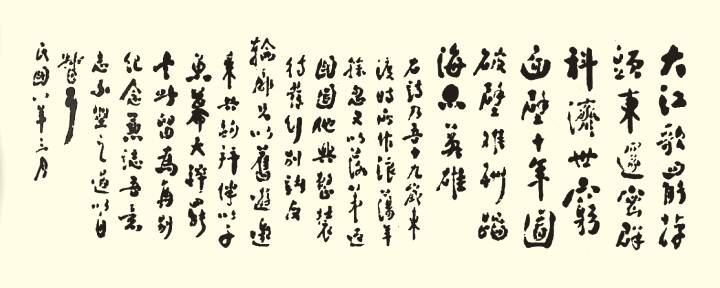 大江歌罷掉
頭東邃密群
科濟世窮
面壁十年圖
破壁難酬蹈
海亦英雄
右詩乃吾十九歲東
渡時所作浪蕩年
餘忽又以落第返
國圖他興整裝
待發行別諸友
輪扉兄以舊遊邀
來共酌並伴以子
魚羹大嚼罷
書此留為再別
紀念兼誌吾意
志不堅之過以自
督
民國八年三月